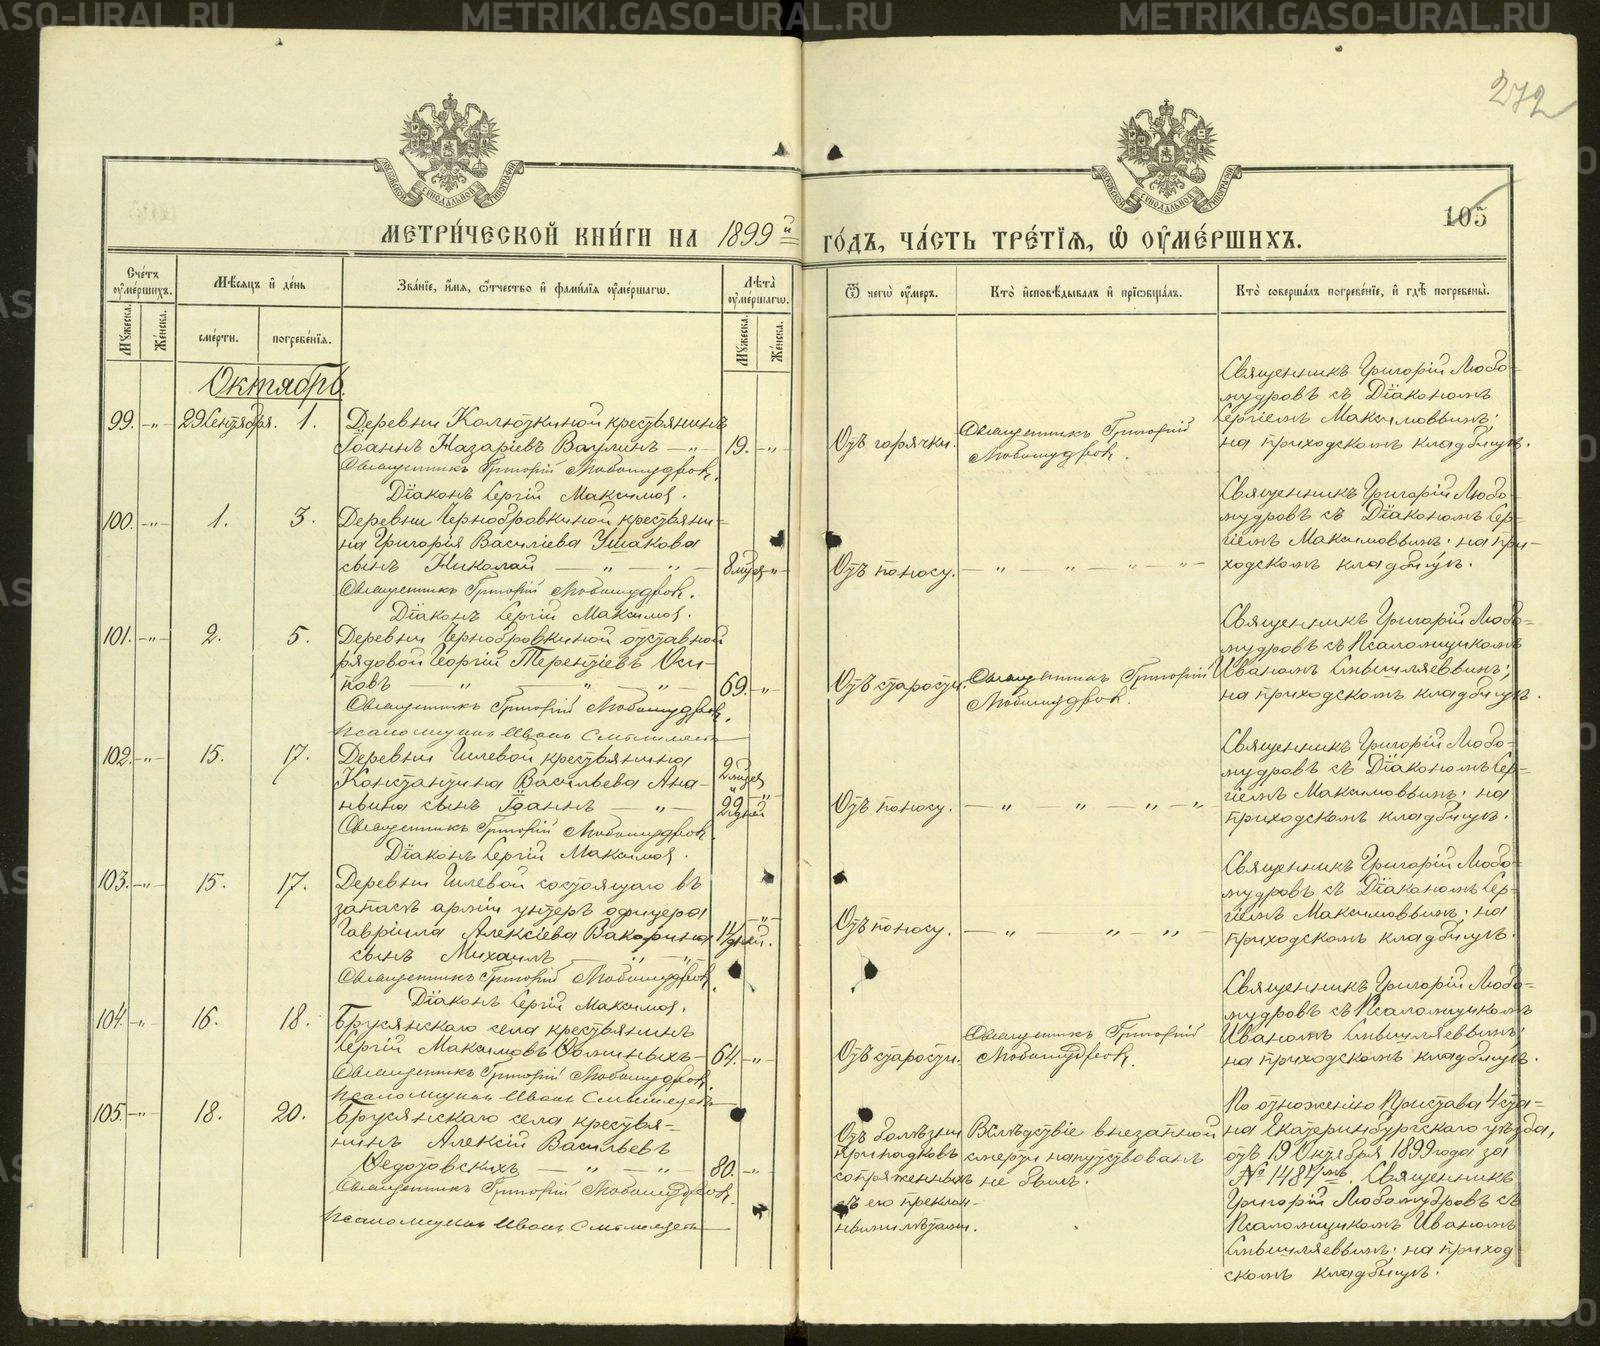 METRIKI.GASO-URAL.RU
272
105
МЕТРИ́ЧЕСКОЙ КНИ́ГИ НА 1899 й ГО́ДЪ, ЧА́СТЬ ТРЕ́ТІѦ, Ѡ҆ ОУ҆МЕ́РШИХЪ.
Сче́тъ оумершихъ.
Мꙋжеска.
Же́нска.
Мѣсяцъ и де́нь
сме́рти.
погребе́нїѧ.
Зва́нїе, и҆́мѧ, ѻ҆́тчество и҆ фами́лїѧ оу҆ме́ршагѡ.
Лѣта̀ оу҆ме́ршагѡ.
Мꙋжеска.
Же́нска.
Ѿ чегѡ̀ оу҆́меръ.
Кто̀ и҆сповѣ́дывалъ и҆ прїѡбща́лъ.
Кто̀ соверша́лъ погребе́нїе, и҆ гдѣ̀ погребены̀.
Октябрь
99. -"- 29 Сентября. 1. Деревни Колюткиной крестьянинъ
Іоаннъ Назаріевъ Ваулинъ — " — 19. -"-
Священникъ Григорій Любомудровъ.
Діаконъ Сергій Максимов.
Отъ горячки.
Священникъ Григорий
Любомудровъ.
Священникъ Григорій Любо-
мудровъ съ Діакономъ
Сергіемъ Максимовымъ;
на приходскомъ кладбищѣ.
100. -"- 1. 3. Деревни Чернобровкиной крестьяни-
на Григорія Василіева Ушакова
сынъ Николай — " — " — 8 мѣся -"-
Священникъ Григорій Любомудровъ.
Діаконъ Сергій Максимов.
Отъ поносу. — " — " — " —
Священникъ Григорій Любо-
мудровъ съ Діакономъ Сер-
гіемъ Максимовымъ; на при-
ходскомъ кладбищѣ.
101. -"- 2. 5. Деревни Чернобровкиной отставной
рядовой Георгій Терентіевъ Оси-
повъ — " — " — " — 69. -"-
Священникъ Григорій Любомудровъ.
Псаломщикъ Иванъ
Отъ старости.
Священникъ Григорий
Любомудровъ.
Священникъ Григорій Любо-
мудровъ съ Псаломщикомъ
Иваномъ
на приходскомъ кладбищѣ.
102. -"- 15. 17. Деревни Гилевой крестьянина
Константина Васильева Ана-
ньина сынъ Іоаннъ — " — 2 мѣся 22 дней -"-
Священникъ Григорій Любомудровъ.
Діаконъ Сергій Максимов.
Отъ поносу. — " — " — " — "
Священникъ Григорій Любо-
мудровъ съ Діакономъ Сер-
гіемъ Максимовымъ; на
приходскомъ кладбищѣ.
103. -"- 15. 17. Деревни Гилевой состоящаго въ
запасѣ арміи унтеръ офицера
Гавріила Алексіева Вакарина 11 дней. -"-
сынъ Михаилъ — " — "
Священникъ Григорій Любомудровъ.
Діаконъ Сергій Максимов.
Отъ поносу. — " — " — " —
Священникъ Григорій Любо-
мудровъ съ Діакономъ Сер-
гіемъ Максимовымъ; на
приходскомъ кладбищѣ.
104. -"- 16. 18. Брусянскаго села крестьянинъ
Сергій Максимовъ 64. -"-
Священникъ Григорій Любомудровъ.
Псаломщикъ Иванъ
Отъ старости.
Священникъ Григорій
Любомудровъ.
Священникъ Григорій Любо-
мудровъ съ Псаломщикомъ
Иваномъ
на приходскомъ кладбищѣ.
105. -"- 18. 20. Брусянскаго села крестья-
нинъ Алексій Васильевъ
Федотовскихъ — " — " — 80. -"-
Священникъ Григорій Любомудровъ.
Псаломщикъ Иванъ
Отъ болѣзни
припадковъ
сопряженныхъ
съ его преклон-
ными лѣтами.
Вслѣдствіе внезапной
смерти напутствованъ
не былъ.
По отношенію Пристава 4 ста-
на Екатеринбургскаго уѣзда,
отъ 19 Октября 1899 года за
№ 1487мъ. Священникъ
Григорій Любомудровъ съ
Псаломщикомъ Иваномъ
на приход-
скомъ кладбищѣ.